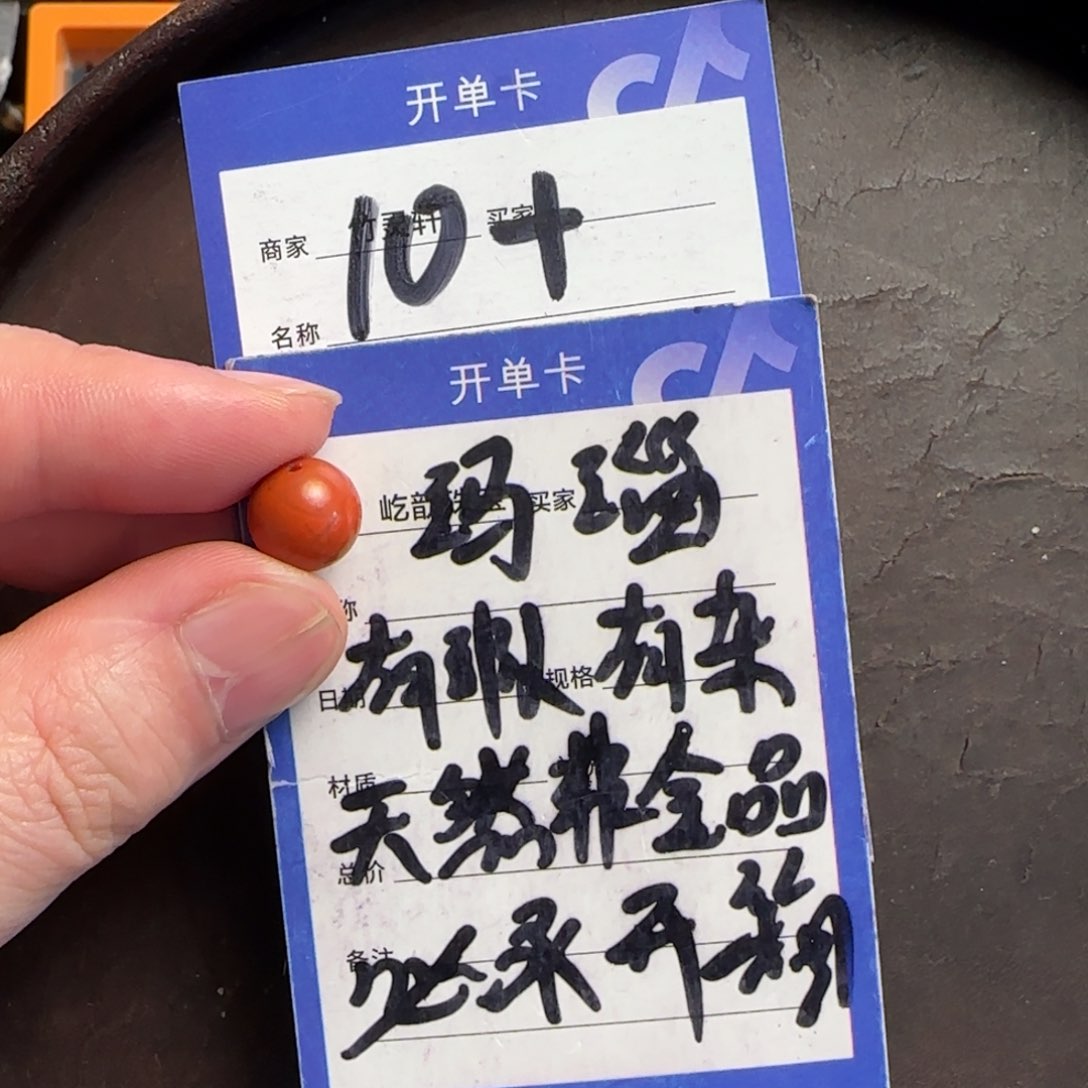 开单卡
商家 竹灵轩 买家
10+
名称
开单卡
屹韵珠宝 买家
玛瑙
称
有瑕 有杂
日期 规格
材质
天然非全品
总价
必录开箱
备注